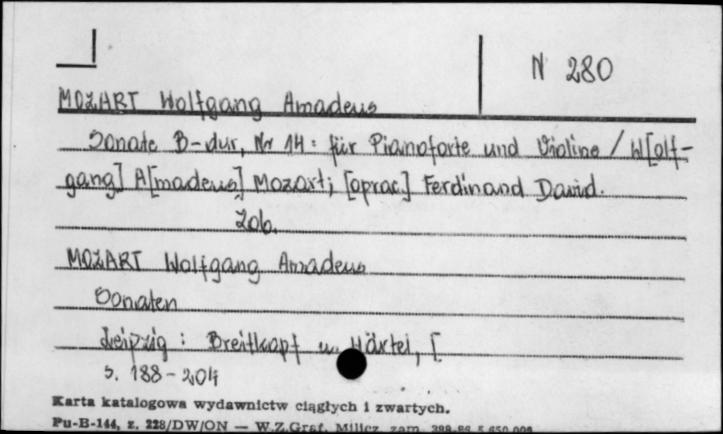 N 280
MOZART Wolfgang Amadeus
Sonate B-dur, Nr 14 : für Pianoforte und Violine / W[olf-
gang] A[madeus] Mozart; [oprac.] Ferdinand David.
Zob.
MOZART Wolfgang Amadeus
Sonaten
Leipzig : Breitkopf u. Härtel, [
s. 188-204
Karta katalogowa wydawnictw ciągłych i zwartych.
Pu-B-144, z. 228/DW/ON — W.Z.Graf. Milicz, zam.